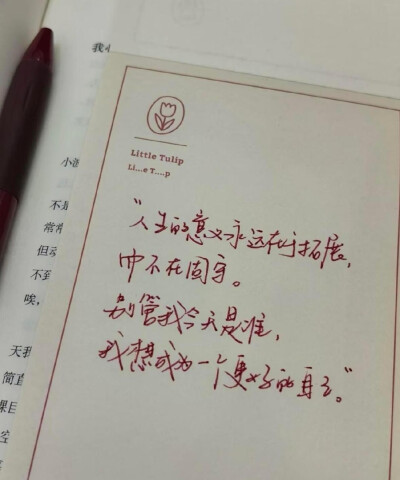 我心
Little Tulip
Li...e T....p
“人生的意义永远在于拓展,
而不在固守。
别管我今天是谁,
我想成为一个更好的自己。”
小
不是
常常
但
不到
唉，
天我
简直
课目